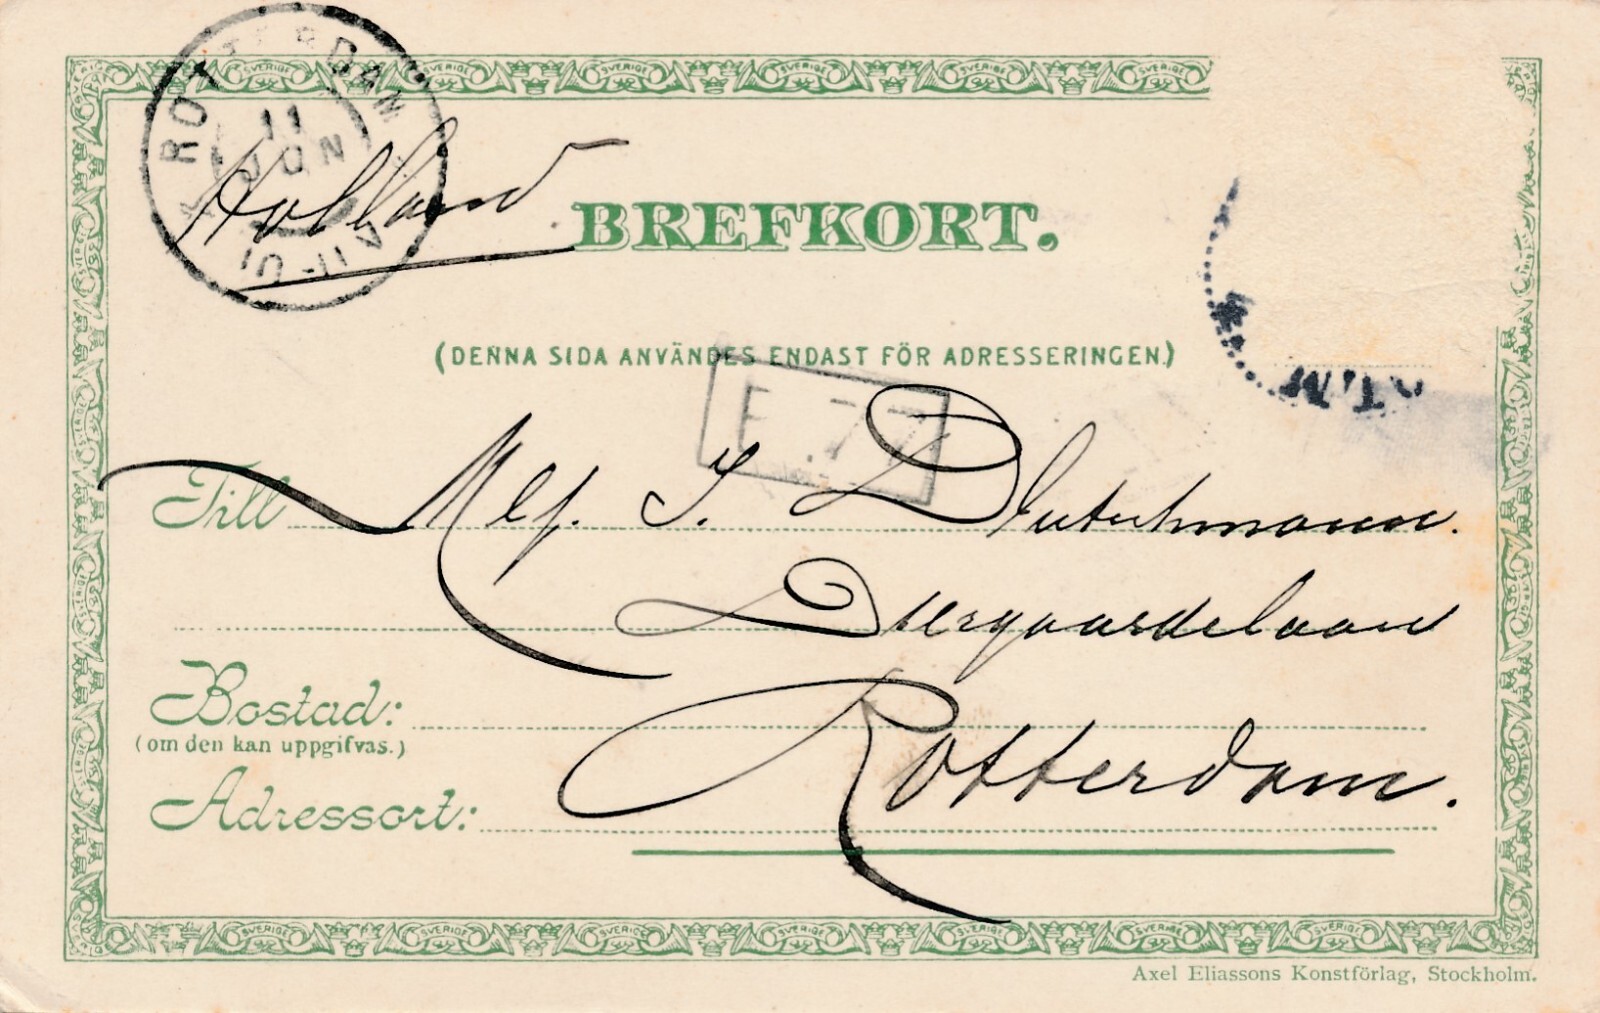 ROTTERDAM
11
JUN
Holland
BREFKORT.
(DENNA SIDA ANVÄNDES ENDAST FÖR ADRESSERINGEN.)
Till
Mej. J.
Diergaardelaan
Bostad:
(om den kan uppgifvas.)
Rotterdam.
Adressort:
Axel Eliassons Konstförlag, Stockholm.